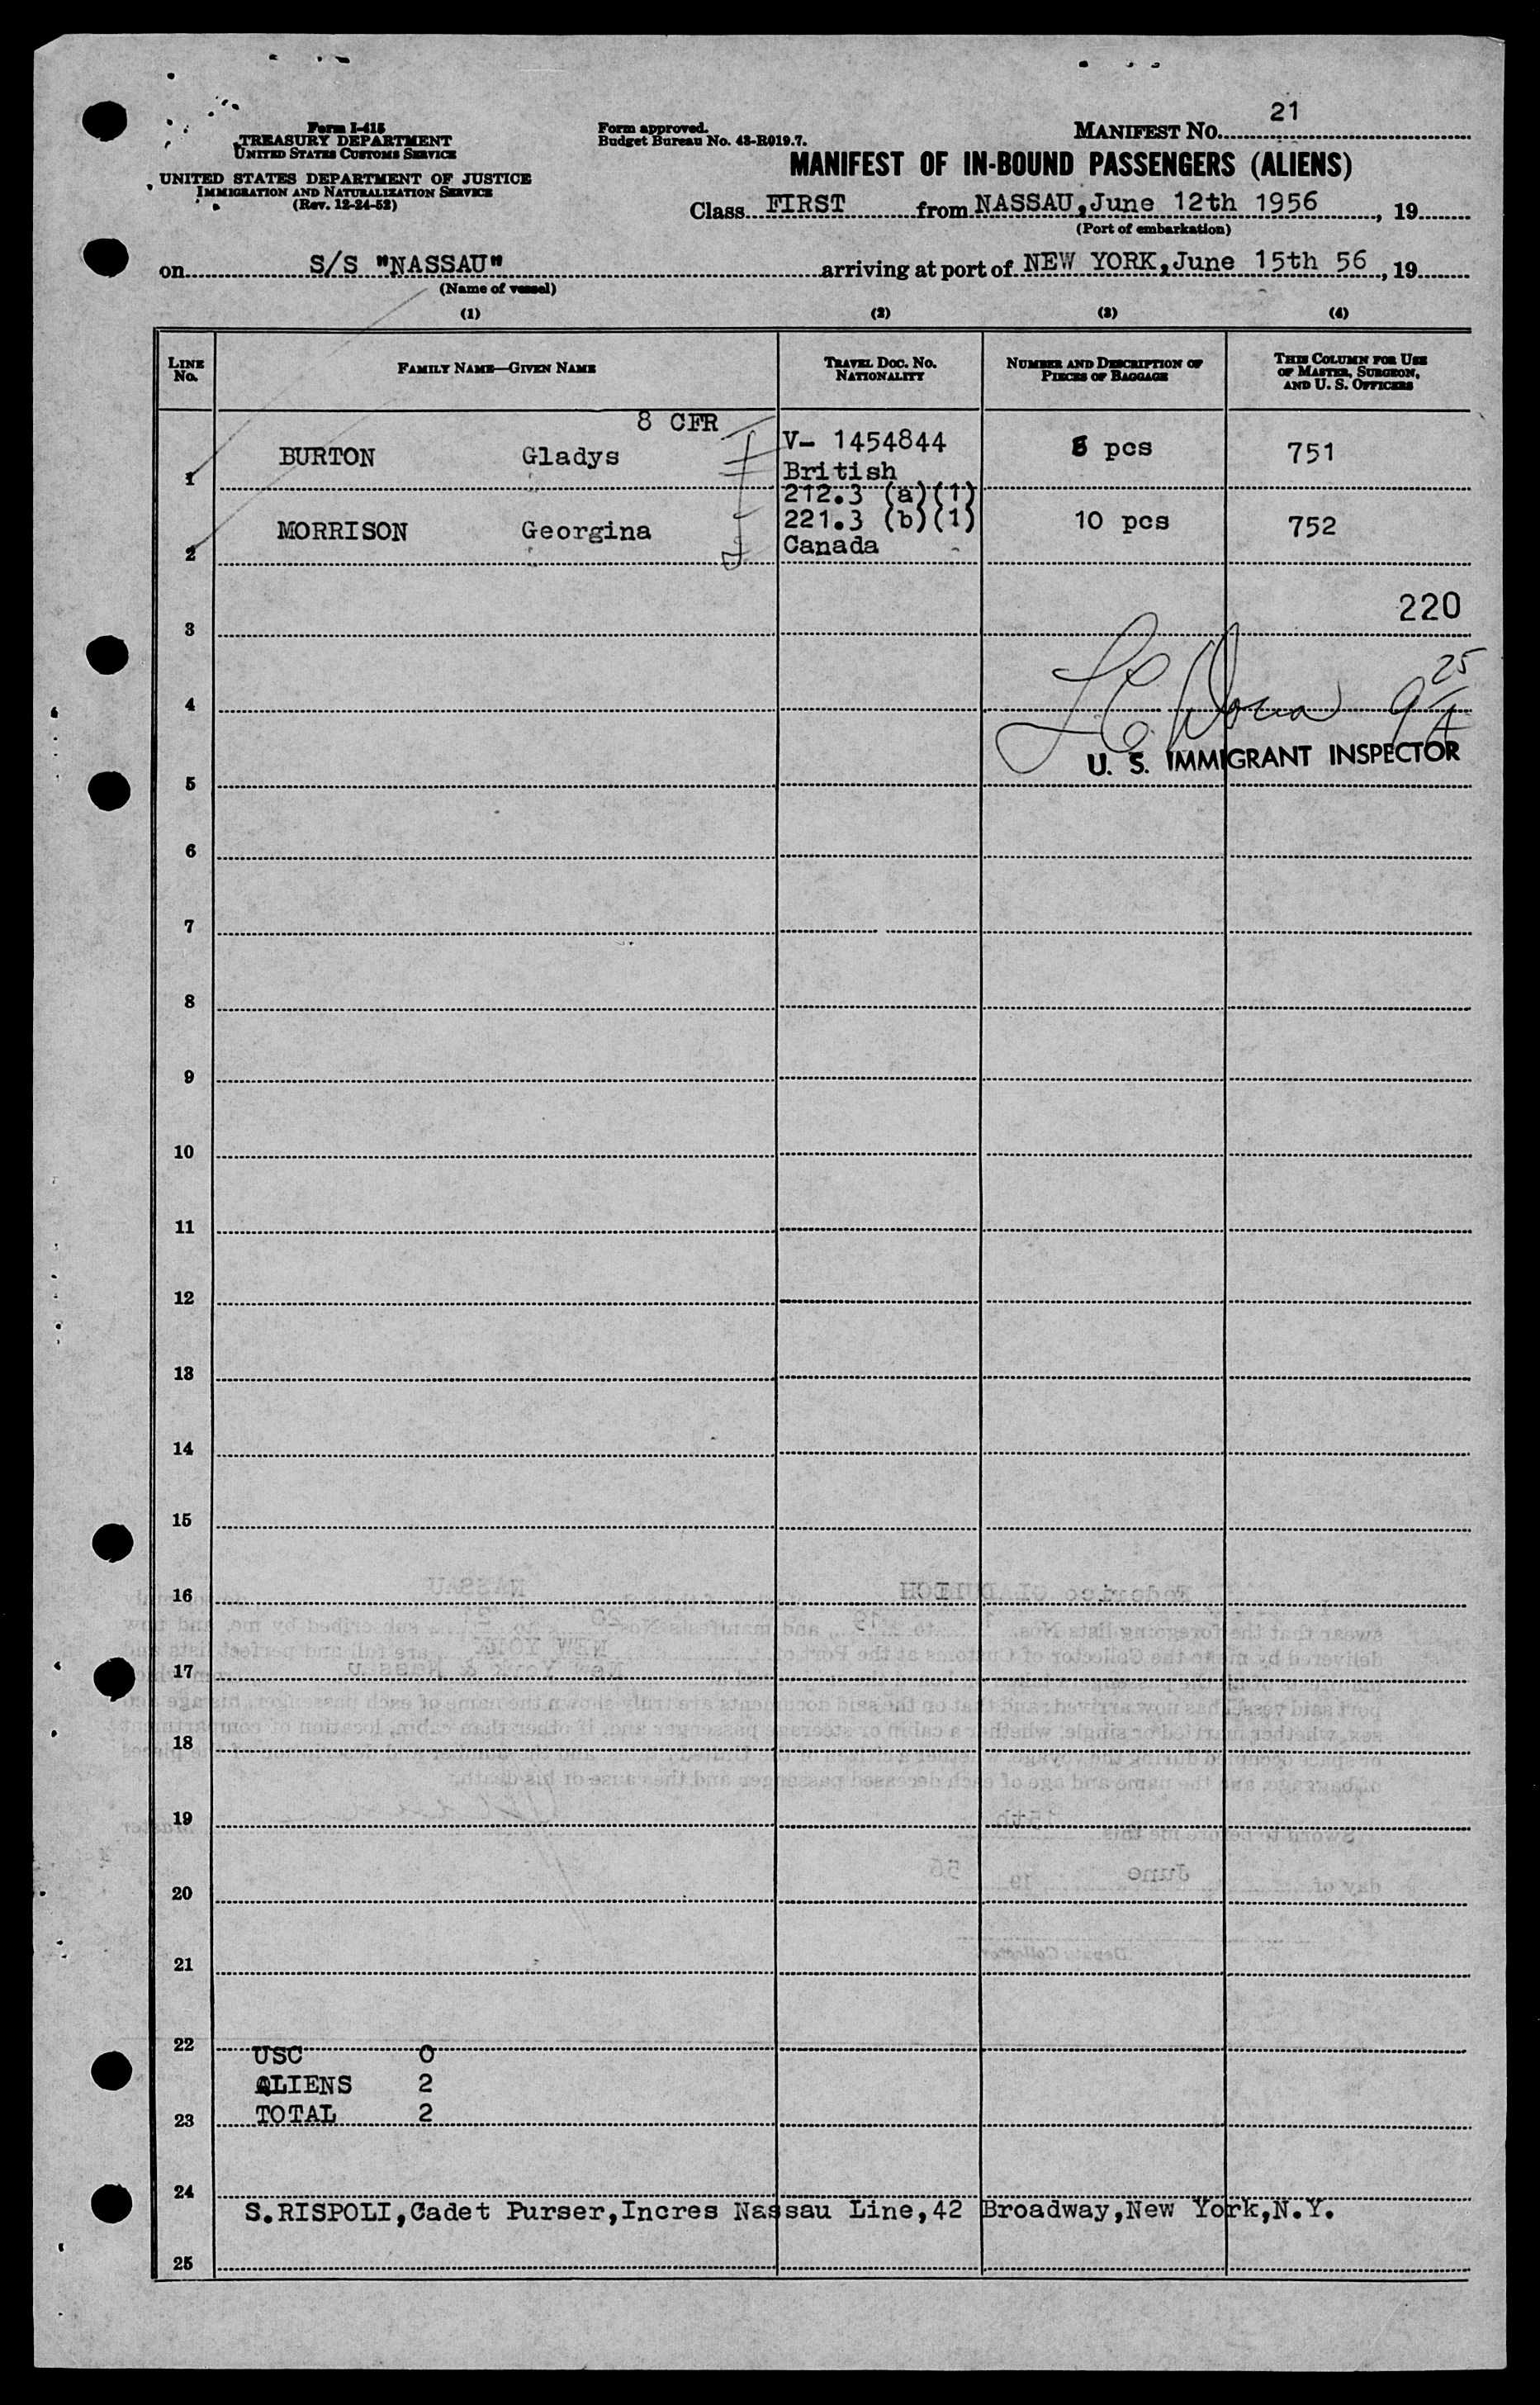 Form I-415
TREASURY DEPARTMENT
UNITED STATES CUSTOMS SERVICE
UNITED STATES DEPARTMENT OF JUSTICE
IMMIGRATION AND NATURALIZATION SERVICE
(Rev. 12-24-52)
Form approved.
Budget Bureau No. 43-R019.7.
MANIFEST NO. 21
MANIFEST OF IN-BOUND PASSENGERS (ALIENS)
Class FIRST from NASSAU,June 12th 1956, 19
(Port of embarkation)
on S/S "NASSAU" arriving at port of NEW YORK,June 15th 56, 19
(Name of vessel)
(1) (2) (3) (4)
LINE NO. FAMILY NAME—GIVEN NAME TRAVEL DOC. NO. NATIONALITY NUMBER AND DESCRIPTION OF PIECES OF BAGGAGE THIS COLUMN FOR USE OF MASTER, SURGEON, AND U. S. OFFICERS
8 CFR
1 BURTON Gladys V- 1454844 British pcs 751
212.3 (a)(1)
2 MORRISON Georgina 221.3 (b)(1) Canada 10 pcs 752
220
3
4
9 25 A
U. S. IMMIGRANT INSPECTOR
5
6
7
8
9
10
11
12
13
14
15
16
17
18
19
20
21
22
USC 0
ALIENS 2
23 TOTAL 2
24
S.RISPOLI,Cadet Purser,Incres Nassau Line,42 Broadway,New York,N.Y.
25